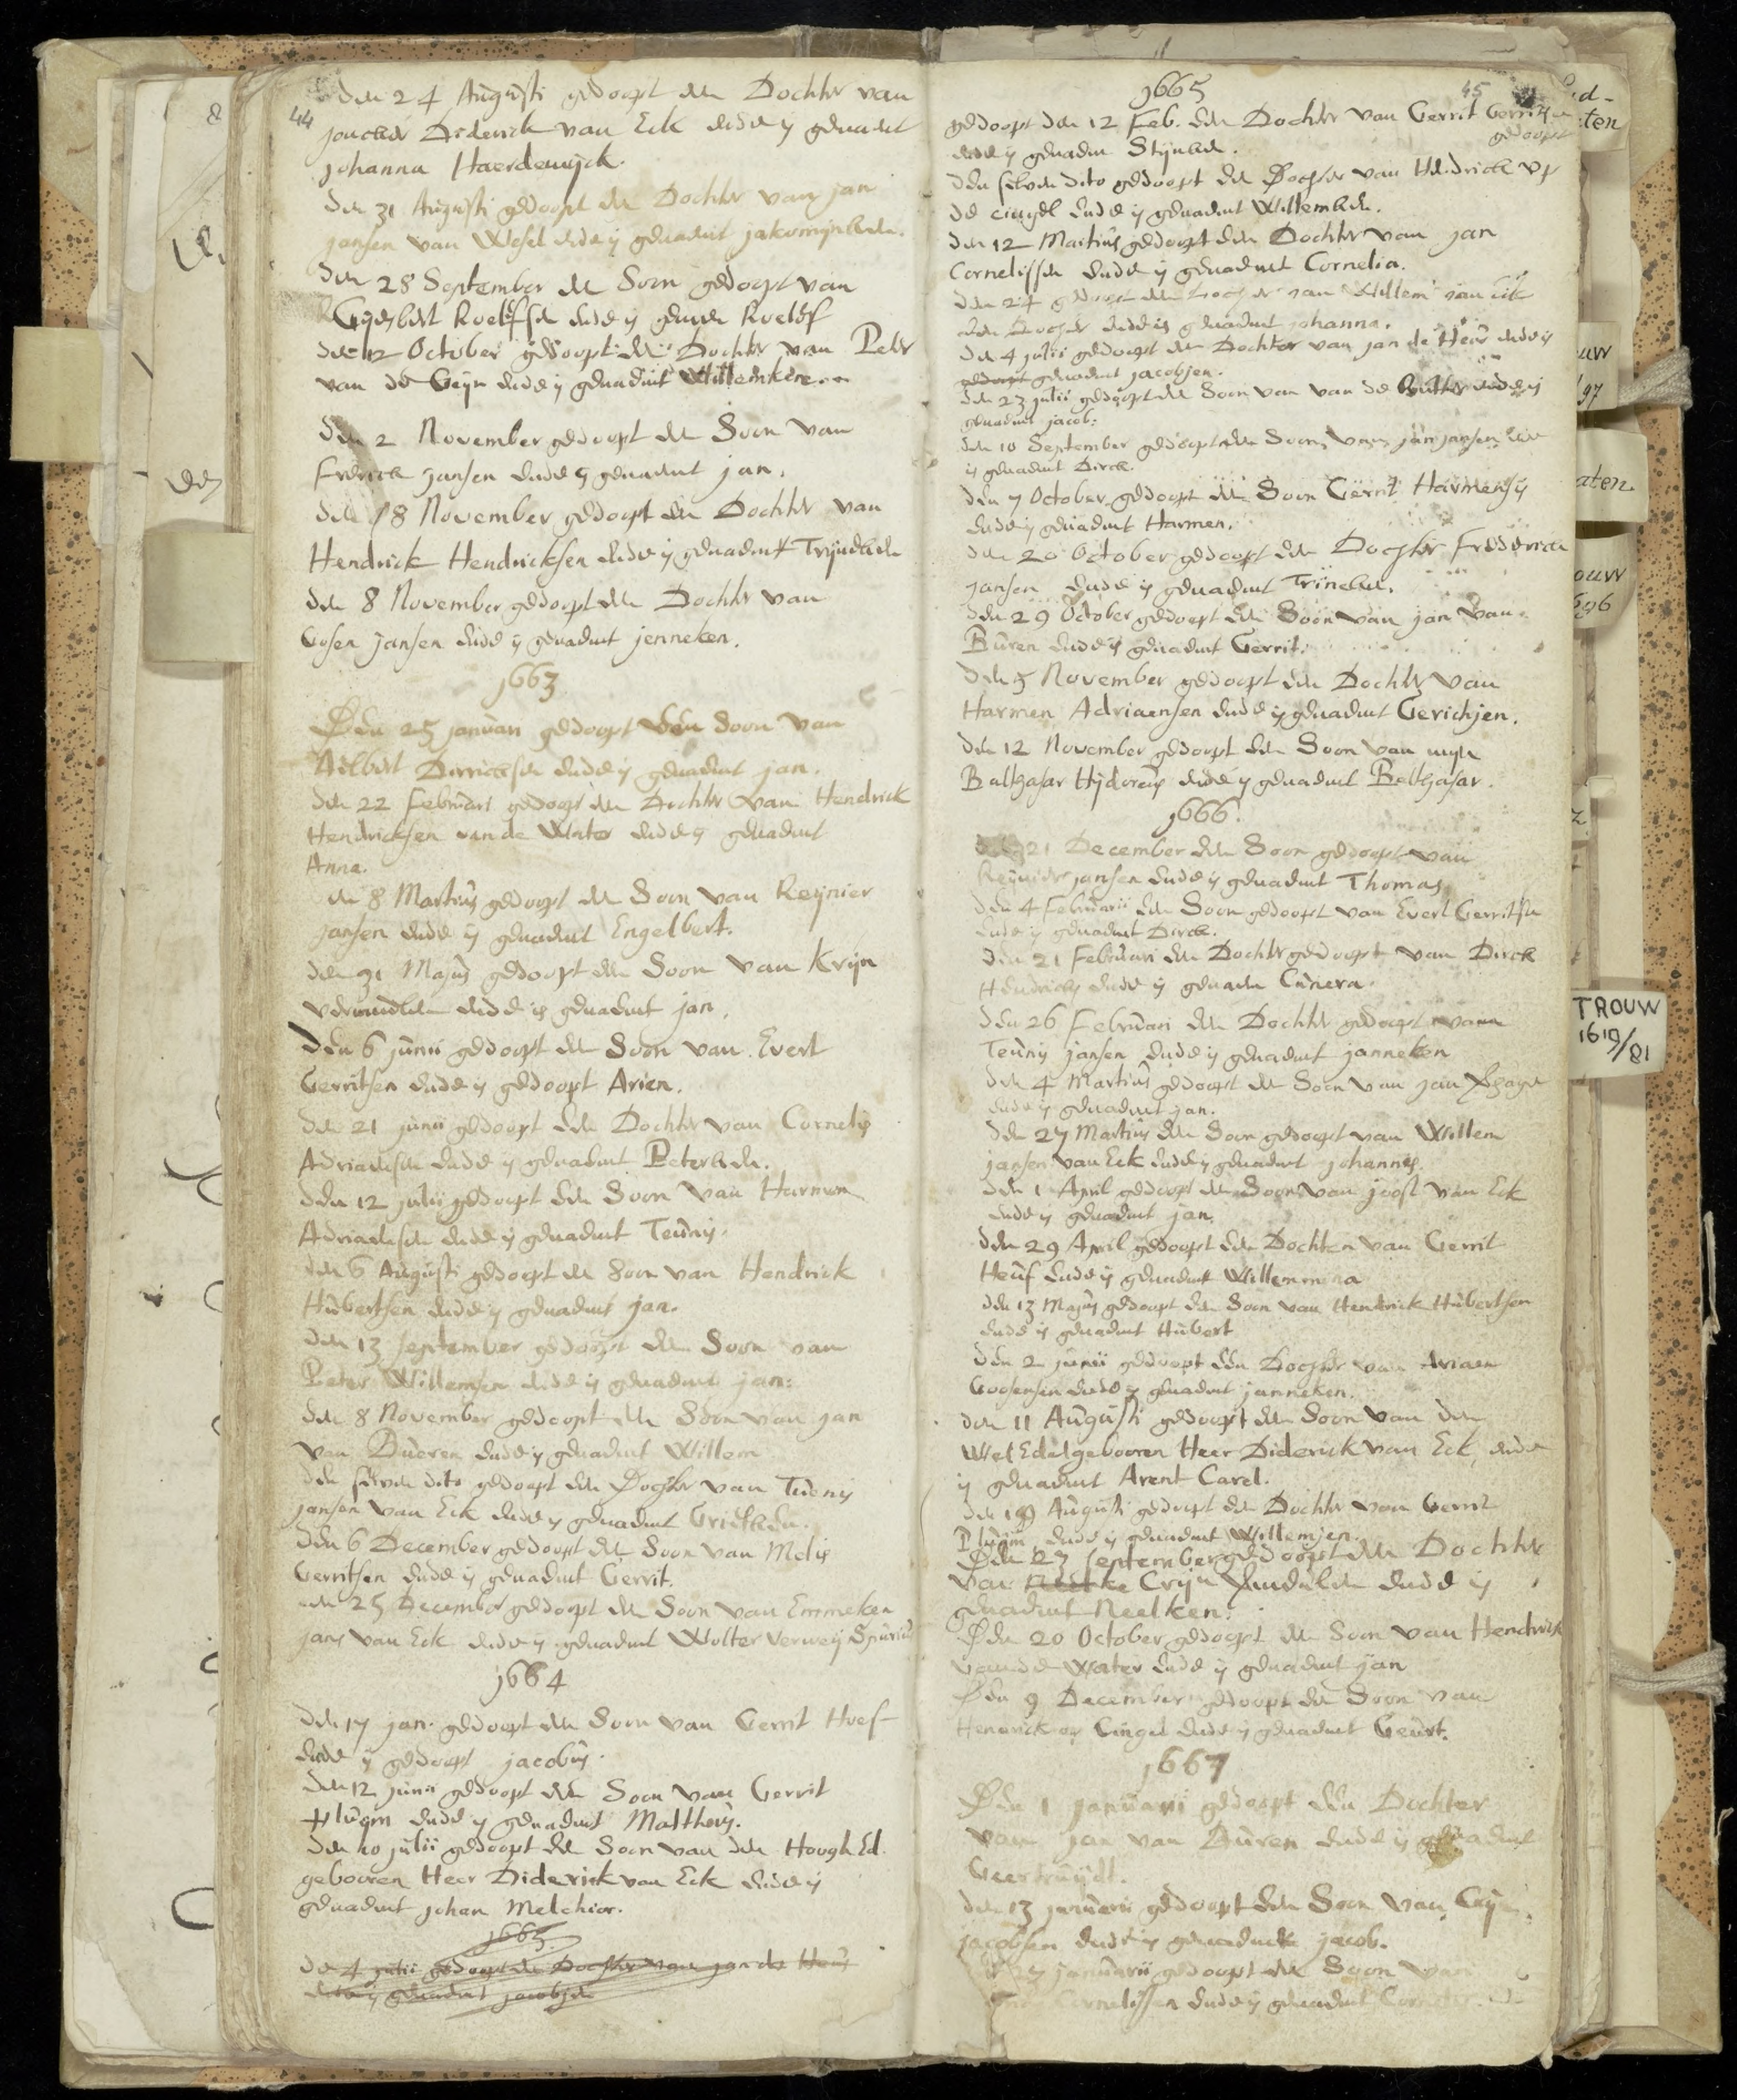 44
den 24 Augusti gedoopt een Dochter van
joncker Diderick van Eck ende is genaemt
johanna Haerderwijck.
den 31 Augusti gedoopt een Dochter van jan
jansen van Wesel ende is genaemt jakomijneken.
den 28 September een Soon gedoopt van
Gijesbert Roelofsen ende is genaemt Roelof
den 12 October gedoopt een Dochter van Peter
van de Geijn ende is genaemt Willemken.
den 2 November gedoopt een Soon van
Frerick jansen ende is genaemt jan.
den 18 November gedoopt een Dochter van
Hendrick Hendricksen ende is genaemt Trijneken
den 8 November gedoopt een Dochter van
Gosen jansen ende is genaemt jenneken.
1663
Den 25 januari gedoopt een Soon van
Aelbert Derricksen ende is genaemt jan.
den 22 Februari gedoopt een Dochter van Hendrick
Hendricksen van de Water ende is genaemt
Anna.
den 8 Martius gedoopt een Soon van Reijnier
jansen ende is genaemt Engelbert.
den 31 Majus gedoopt een Soon van Krijn
ende is genaemt jan.
Den 6 junii gedoopt een Soon van Evert
Gerritsen ende is gedoopt Arien.
den 21 junii gedoopt een Dochter van Cornelis
Adriaensen ende is genaemt Peterken.
den 12 julii gedoopt een Soon van Harmen
Adriaensen ende is genaemt Teunis.
den 6 Augusti gedoopt een Soon van Hendrick
Hubertsen ende is genaemt jan.
den 13 September gedoopt een Soon van
Peter Willemsen ende is genaemt jan:
den 8 November gedoopt een Soon van jan
van Bueren ende is genaemt Willem
den selven dito gedoopt een Dogter van Tuenis
jansen van Eck ende is genaemt Grietken.
Den 6 December gedoopt een Soon van Melis
Gerritsen ende is genaemt Gerrit.
den 25 December gedoopt een Soon van Emmeken
jans van Eck ende is genaemt Wolter Verweij Spurius
1664
den 17 jan. gedoopt een Soon van Gerrit Hoef
ende is gedoopt jacobus.
den 12 junii gedoopt een Soon van Gerrit
Pluijm ende is genaemt Mattheus.
den 10 julii gedoopt een Soon van den Hough Ed.
gebooren Heer Diderick van Eck ende is
genaemt johan Melchior.
1665
den 4 julii gedoopt een Dochter van jan de Heus
ende is genaemt jacobjen
1665
45
gedoopt den 12 Feb. een Dochter van Gerrit Gerrits
gedoopt
ende is genaemt Stijnken.
den selven dito gedoopt een Dogter van Hendrick op
de cingel ende is genaemt Willemken.
den 12 Martius gedoopt een Dochter van jan
Cornelissen ende is genaemt Cornelia.
den 24 gedoopt een Dogter van Willem van Eck
een Dogter ende is genaemt johanna.
den 4 julii gedoopt een Dochter van jan de Heus ende is
gedoopt genaemt jacobjen.
den 23 julii gedoopt een Soon van van de ende is
genaemt jacob:
den 10 September gedoopt een Soon van jan jansen ende
is genaemt Dirck.
den 7 October gedoopt een Soon Gerrit Harmensij
ende is genaemt Harmen.
den 20 October gedoopt een Dogter Frederick
jansen ende is genaemt Trineken.
den 29 October gedoopt een Soon van jan van
Buren ende is genaemt Gerrit.
den 5 November gedoopt een Dochter van
Harmen Adriaensen ende is genaemt Gerichjen.
den 12 November gedoopt een Soon van mijn
Balthasar Hijdoreus ende is genaemt Balthasar.
1666.
21 December een Soon gedoopt van
Reijnier jansen ende is genaemt Thomas
den 4 Februarii een Soon gedoopt van Evert Gerritsen
ende is genaemt Dirck.
den 21 Februari een Dochter gedoopt van Dirck
Hendricks ende is genaemt Cunera.
den 26 Februari een Dochter gedoopt van
Teunis jansen ende is genaemt janneken
den 4 Martius gedoopt een Soon van jan
ende is genaemt jan.
den 27 Martius een Soon gedoopt van Willem
jansen van Eck ende is genaemt johannes.
den 1 April gedoopt een Soon van joost van Eck
ende is genaemt jan.
den 29 April gedoopt een Dochter van Gerrit
Heuf ende is genaemt Willemmina
den 13 Majus gedoopt een Soon van Hendrick Hubertsen
ende is genaemt Hubert
den 2 junii gedoopt een Dogter van Ariaen
Goosensen ende is genaemt janneken.
den 11 Augusti gedoopt een Soon van den
Wel Edelgebooren Heer Diderick van Eck, ende
is genaemt Arent Carel.
den 19 Augusti gedoopt een Dochter van Gerrit
Pluijm ende is genaemt Willemjen.
Den 23 September gedoopt een Dochter
van Crijn ende is
genaemt Neelken.
Den 20 October gedoopt een Soon van Hendrick
van de Water ende is genaemt jan
Den 9 December gedoopt een Soon van
Hendrick op Cingel ende is genaemt Geurt.
1667
Den 1 januarii gedoopt een Dochter
van jan van Buren ende is genaemt
Geertruijdt.
den 13 januarii gedoopt een Soon van Crijn
jacobsen ende is genaemt jacob.
januarii gedoopt een Soon van
Cornelissen ende is genaemt
TROUW
1619/81